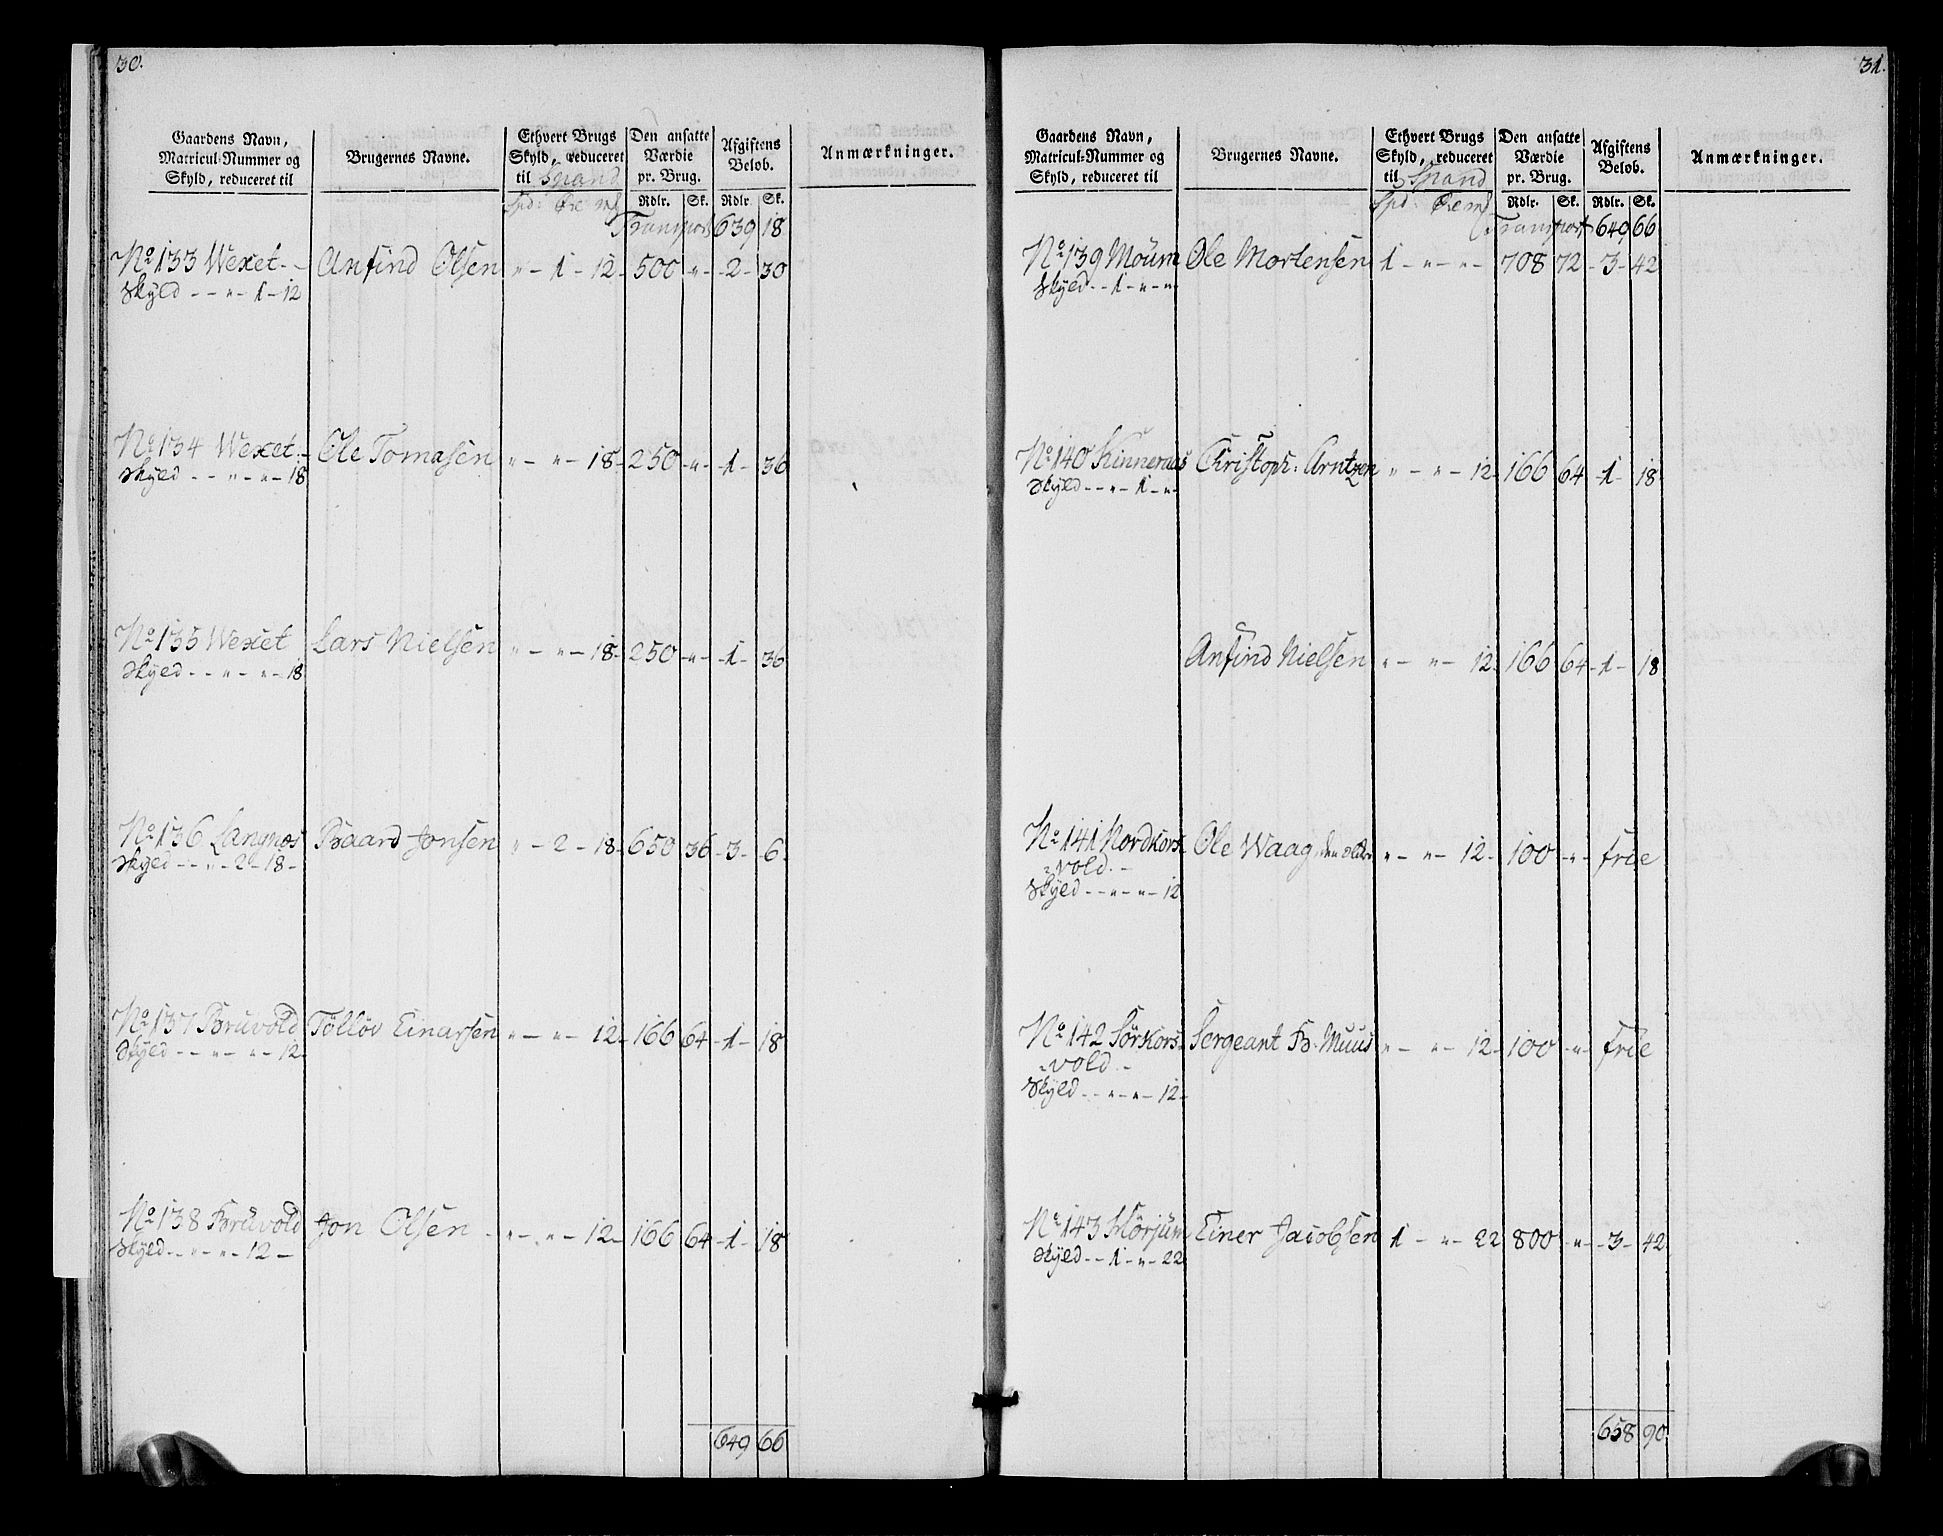 30.
Gaardens Navn,
Matricul-Nummer og
Skyld, reduceret til
Brugernes Navne.
Ethvert Brugs
Skyld, reduceret
til Spand
Spd: Øre mk
Den ansatte
Værdie
pr. Brug.
Rdlr. Sk.
Afgiftens
Beløb.
Rdlr. Sk.
Anmærkninger.
Transport 639 18
No 133 Wexet - - Anfind Olsen " - 1 - 12 - 500 - " - 2 - 30
Skyld - - " - 1 - 12
No 134 Wexet - Ole Tomasen " - " - 18 - 250 - " - 1 - 36
Skyld - - " - " - 18
No 135 Wexet Lars Nielsen " - " - 18 - 250 - " - 1 - 36
Skyld - - " - " - 18
No 136 Langnes Baard Jonsen " - 2 - 18 - 650 36 - 3 - 6 -
Skyld - - " - 2 - 18 -
No 137 Bruvold Tölløv Einarsen " - " - 12 - 166 64 - 1 - 18
Skyld - - " - " - 12
No 138 Bruvold Jon Olsen - " - " - 12 - 166 64 - 1 - 18
Skyld - - " - " - 12 -
649 66
31.
Gaardens Navn,
Matricul-Nummer og
Skyld, reduceret til
Brugernes Navne.
Ethvert Brugs
Skyld, reduceret
til Spand
Spd: Øre mk
Den ansatte
Værdie
pr. Brug.
Rdlr. Sk.
Afgiftens
Beløb.
Rdlr. Sk.
Anmærkninger.
Transport 649 66
No 139 Möum Ole Mortensen 1 - " - " - 708 72 - 3 - 42
Skyld - - 1 - " - "
No 140 Kinneraas Christoph: Arntzen " - " - 12 - 166 64 - 1 - 18
Skyld - - " - 1 - "
Anfind Nielsen " - " - 12 - 166 64 - 1 - 18
No 141 Nordkors- Ole Waag " - " - 12 - 100 - " - frie
vold -
Skyld - - " - " - 12
No 142 Sørkors- Sergeant B. Muus " - " - 12 - 100 - " - frie
vold -
Skyld - - " - " - 12 -
No 143 Skörjum Einer Jacobsen 1 - " - 22 800 - " - 3 - 42
Skyld - - 1 - " - 22
658 90